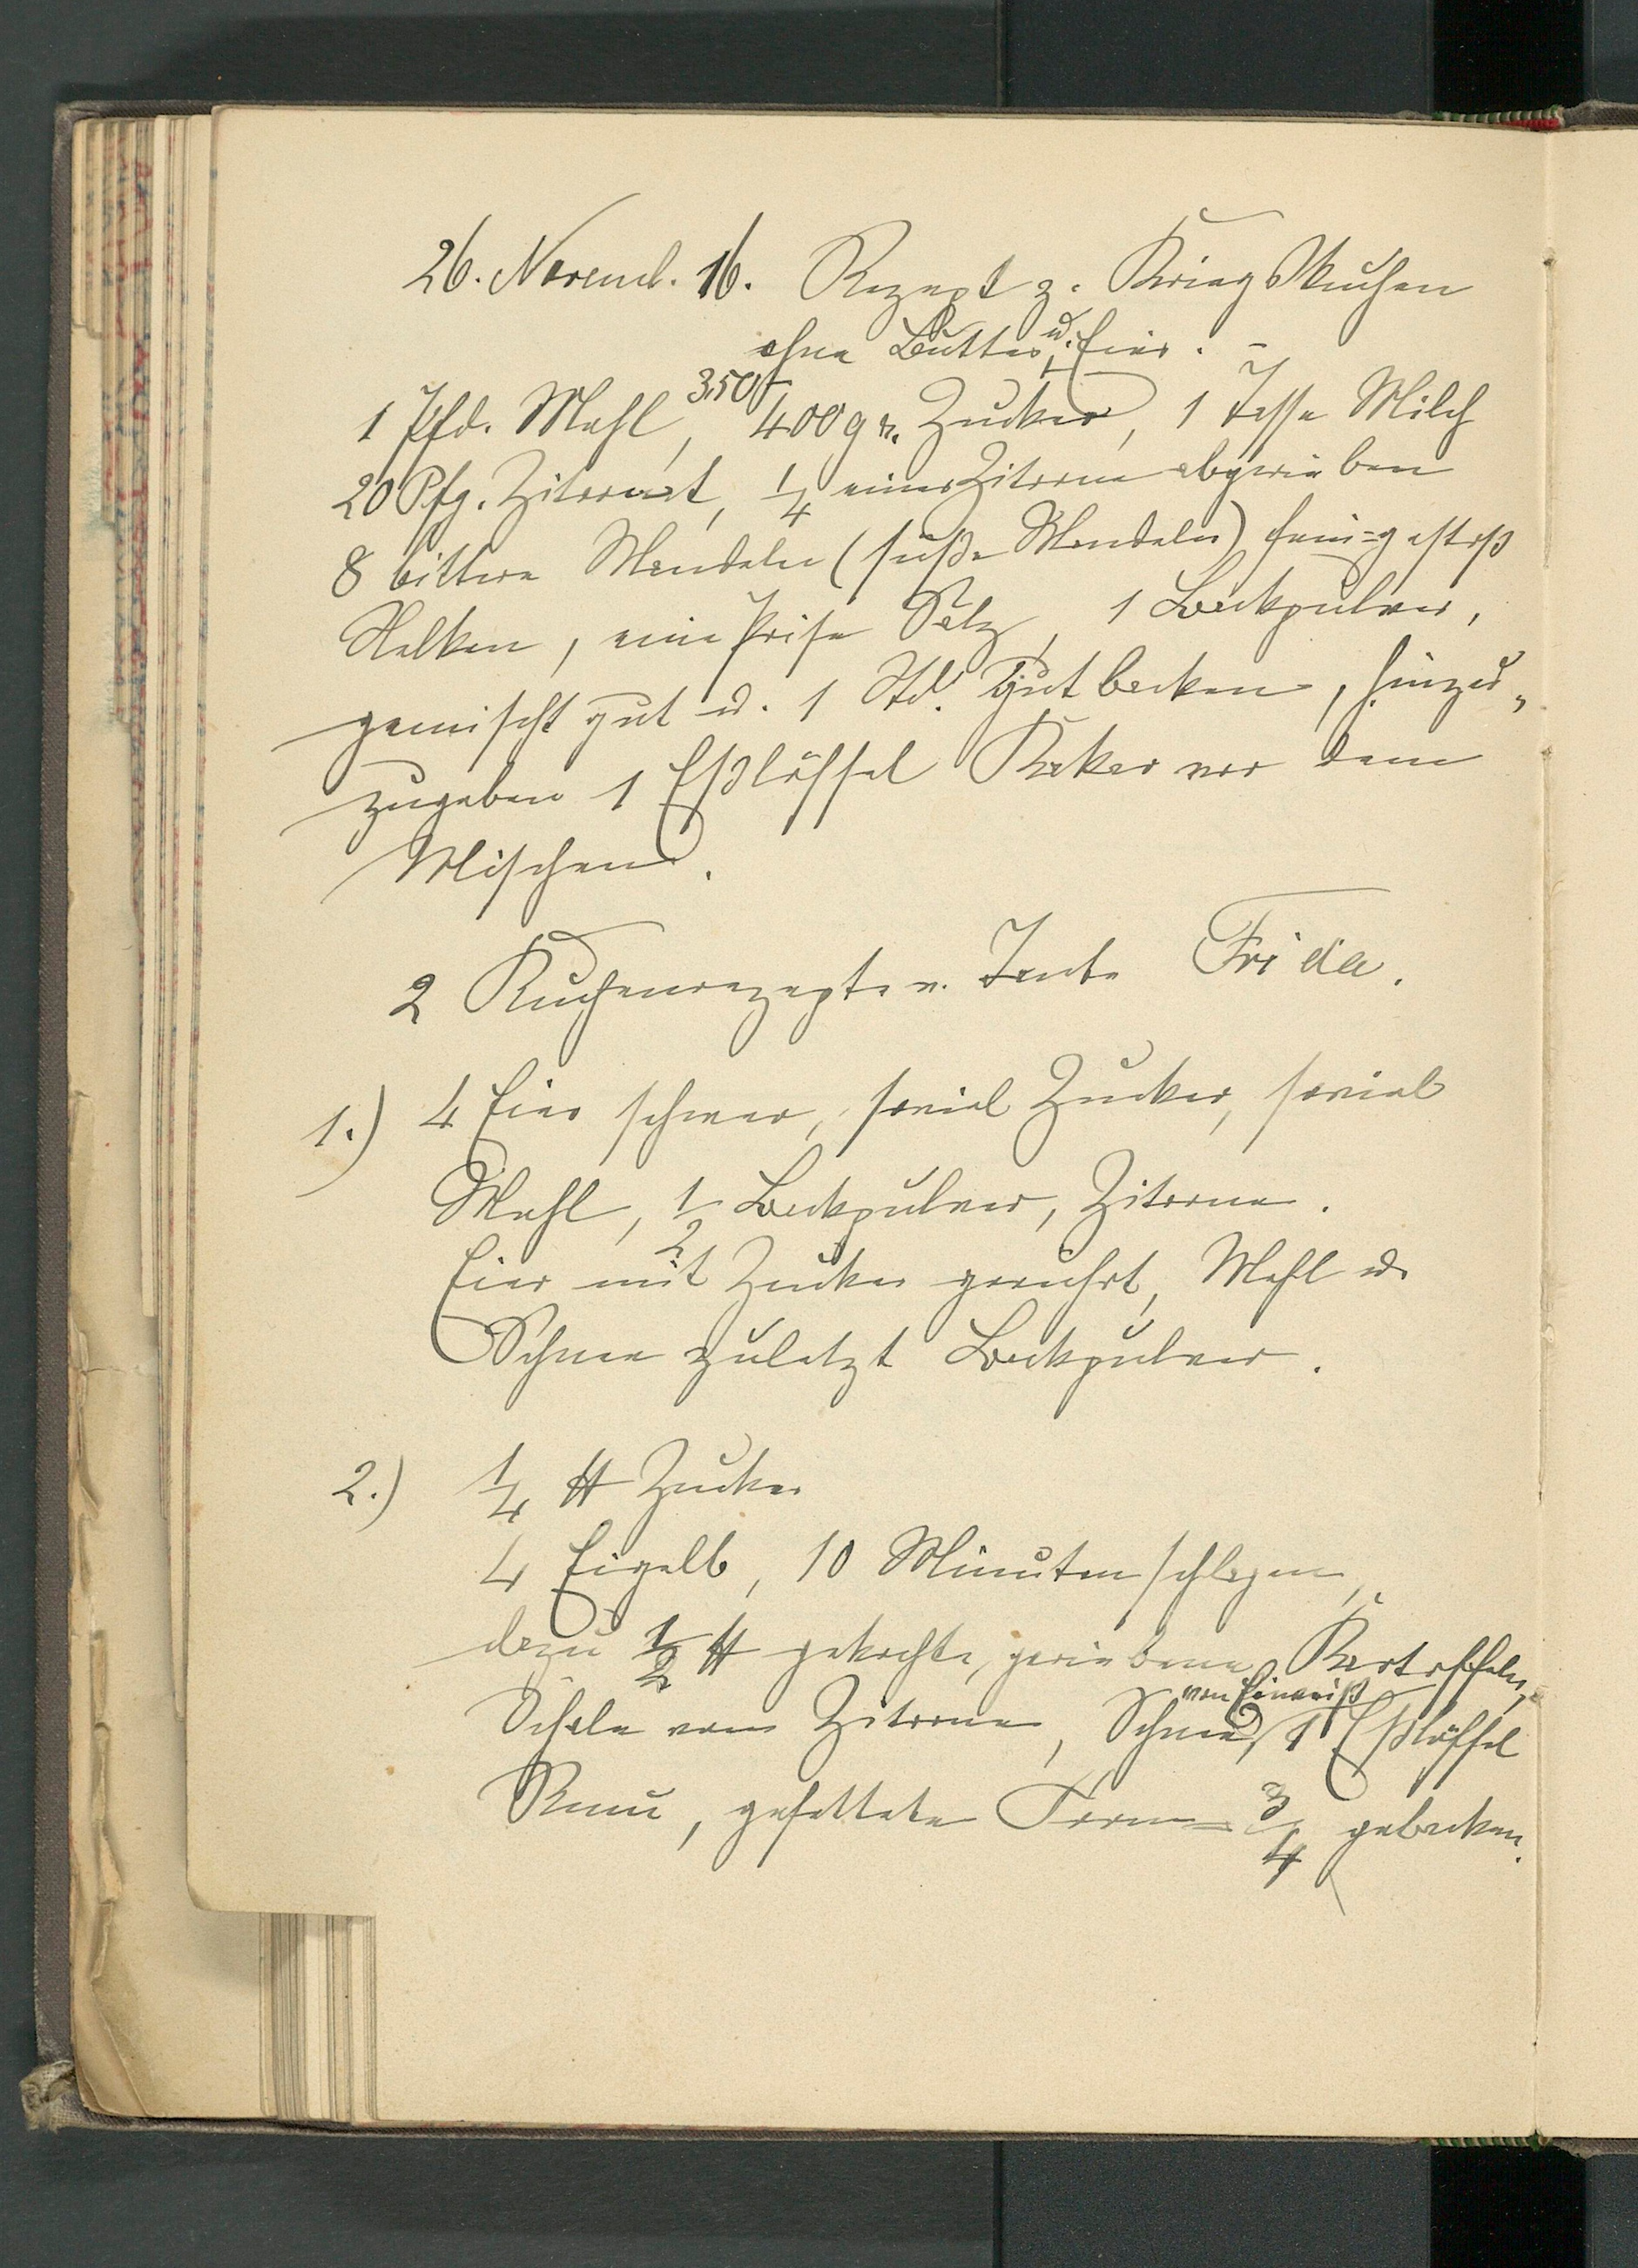 26. Novemb. 16. Rezept z. Kriegskuchen
ohne Butter u. Eier. -
1 Pfd. Mehl, 350 400 gr. Zucker, 1 Tasse Milch
20 Pfg. Zitronat, 1/4 einer Zitrone abgerieben
8 bittere Mandeln (süße Mandeln) fein-gestoß
Nelken, eine Prise Salz, 1 Backpulver,
gemischt gut u. 1 Std. gut backen, hinzu„
zugeben 1 Eßlöffel Kakao vor dem
Mischen.
2 Kuchenrezepte v. Tante Frida.
1.) 4 Eier schwer, soviel Zucker, soviel
Mehl, 1/2 Backpulver, Zitrone.
Eier mit Zucker gerührt, Mehl u.
Schnee zuletzt Backpulver.
2.) 1/4 ℔ Zucker
4 Eigelb, 10 Minuten schlagen,
dazu 1/2 ℔ gekochte, geriebene Kartoffeln,
von Eiweiß
Schale von Zitrone, Schnee, 1 Eßlöffel
Rum, gefettete Form 3/4 gebacken.